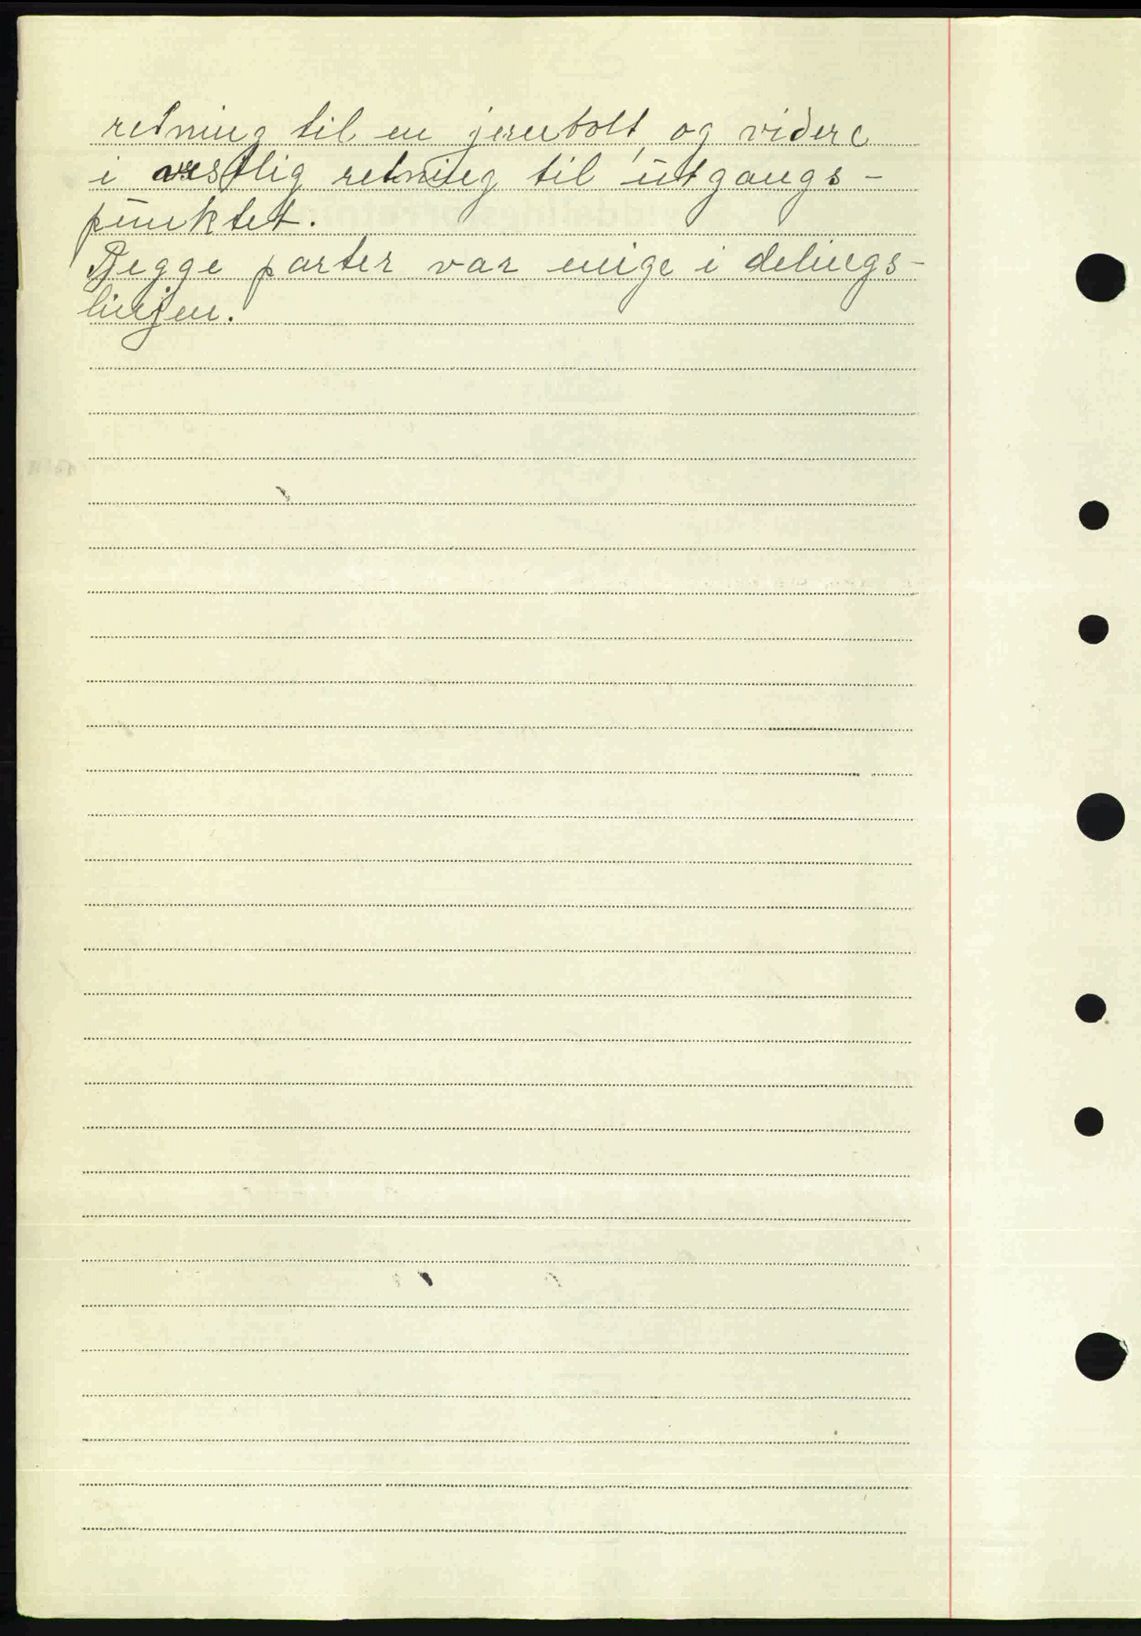 retning til en jernbolt, og videre
i vestlig retning til utgangs-
punktet.
Begge parter var enige i delings-
linjen.